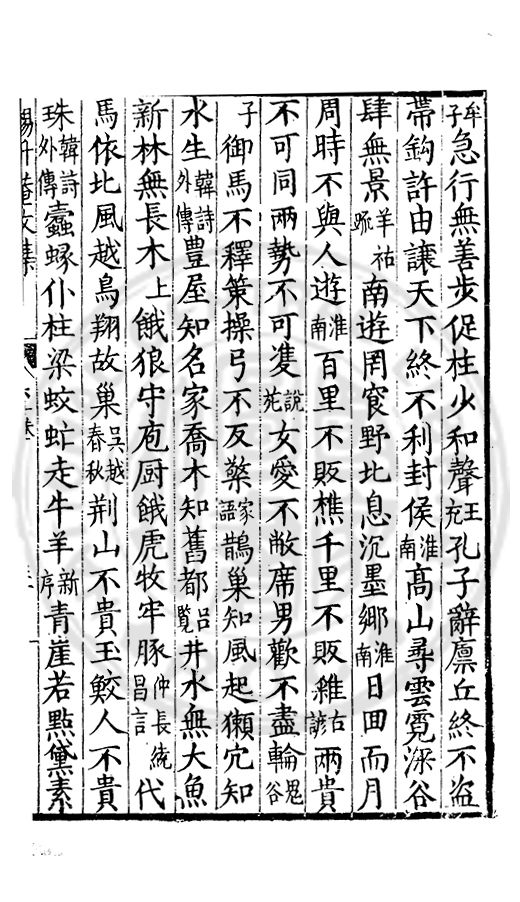 牟子急行無善步促柱少和聲王充孔子辭廩丘終不盜
帶鈎許由讓天下終不利封侯淮南高山尋雲霓深谷
肆無景羊祜䟽南遊罔㝗野北息沉墨鄉淮南日回而月
周時不與人遊淮南百里不販樵千里不販古諺兩貴
不可同兩勢不可䨇說苑女愛不敝席男歡不盡輪鬼谷
子御馬不釋策操弓不反檠家語鵲巢知風起獺穴知
水生韓詩外傳豊屋知名家喬木知舊都呂覽井水無大魚
新林無長木上餓狼守庖厨餓虎牧牢豚仲長統昌言代
馬依北風越鳥翔故巢吳越春秋荆山不貴玉鮫人不貴
珠韓詩外傳蠹蝝仆柱梁蚊虻走牛羊新序青崖若點黛素